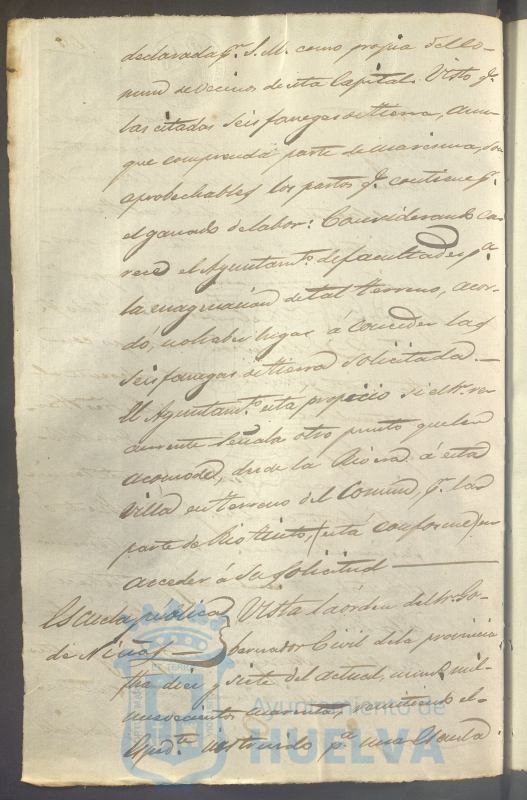 declarada pr. S. M. como propia del Co-
mun de vecinos de esta Capital. Visto qe.
las citadas seis fanegas de tierra, aun-
que comprenda parte de marisma, son
aprobechables los pastos qe. contiene pr.
el ganado de labor: Considerando ca-
rece el Ayuntamto. de facultades pa.
la enagenacion de tal terreno, acor-
dó, no haber lugar á conceder las
seis fanegas de tierra solicitada —
El Ayuntamto. está propicio si el
señala otro punto que le
acomode, desde la Rivera á esta
Villa en terreno del Comun, pr. la
parte de Rio tinto, (está conforme) en
acceder á su solicitud —
Escuela publica
de Niñas —
Vista la órden del Sr. Go-
bernador Civil de la provincia
fha. diez y siete del actual, numo. mil
nuevecientos cuarenta, remitiendo el
Espedte. instruido pa. una Escuela
Ayuntamiento de
HUELVA